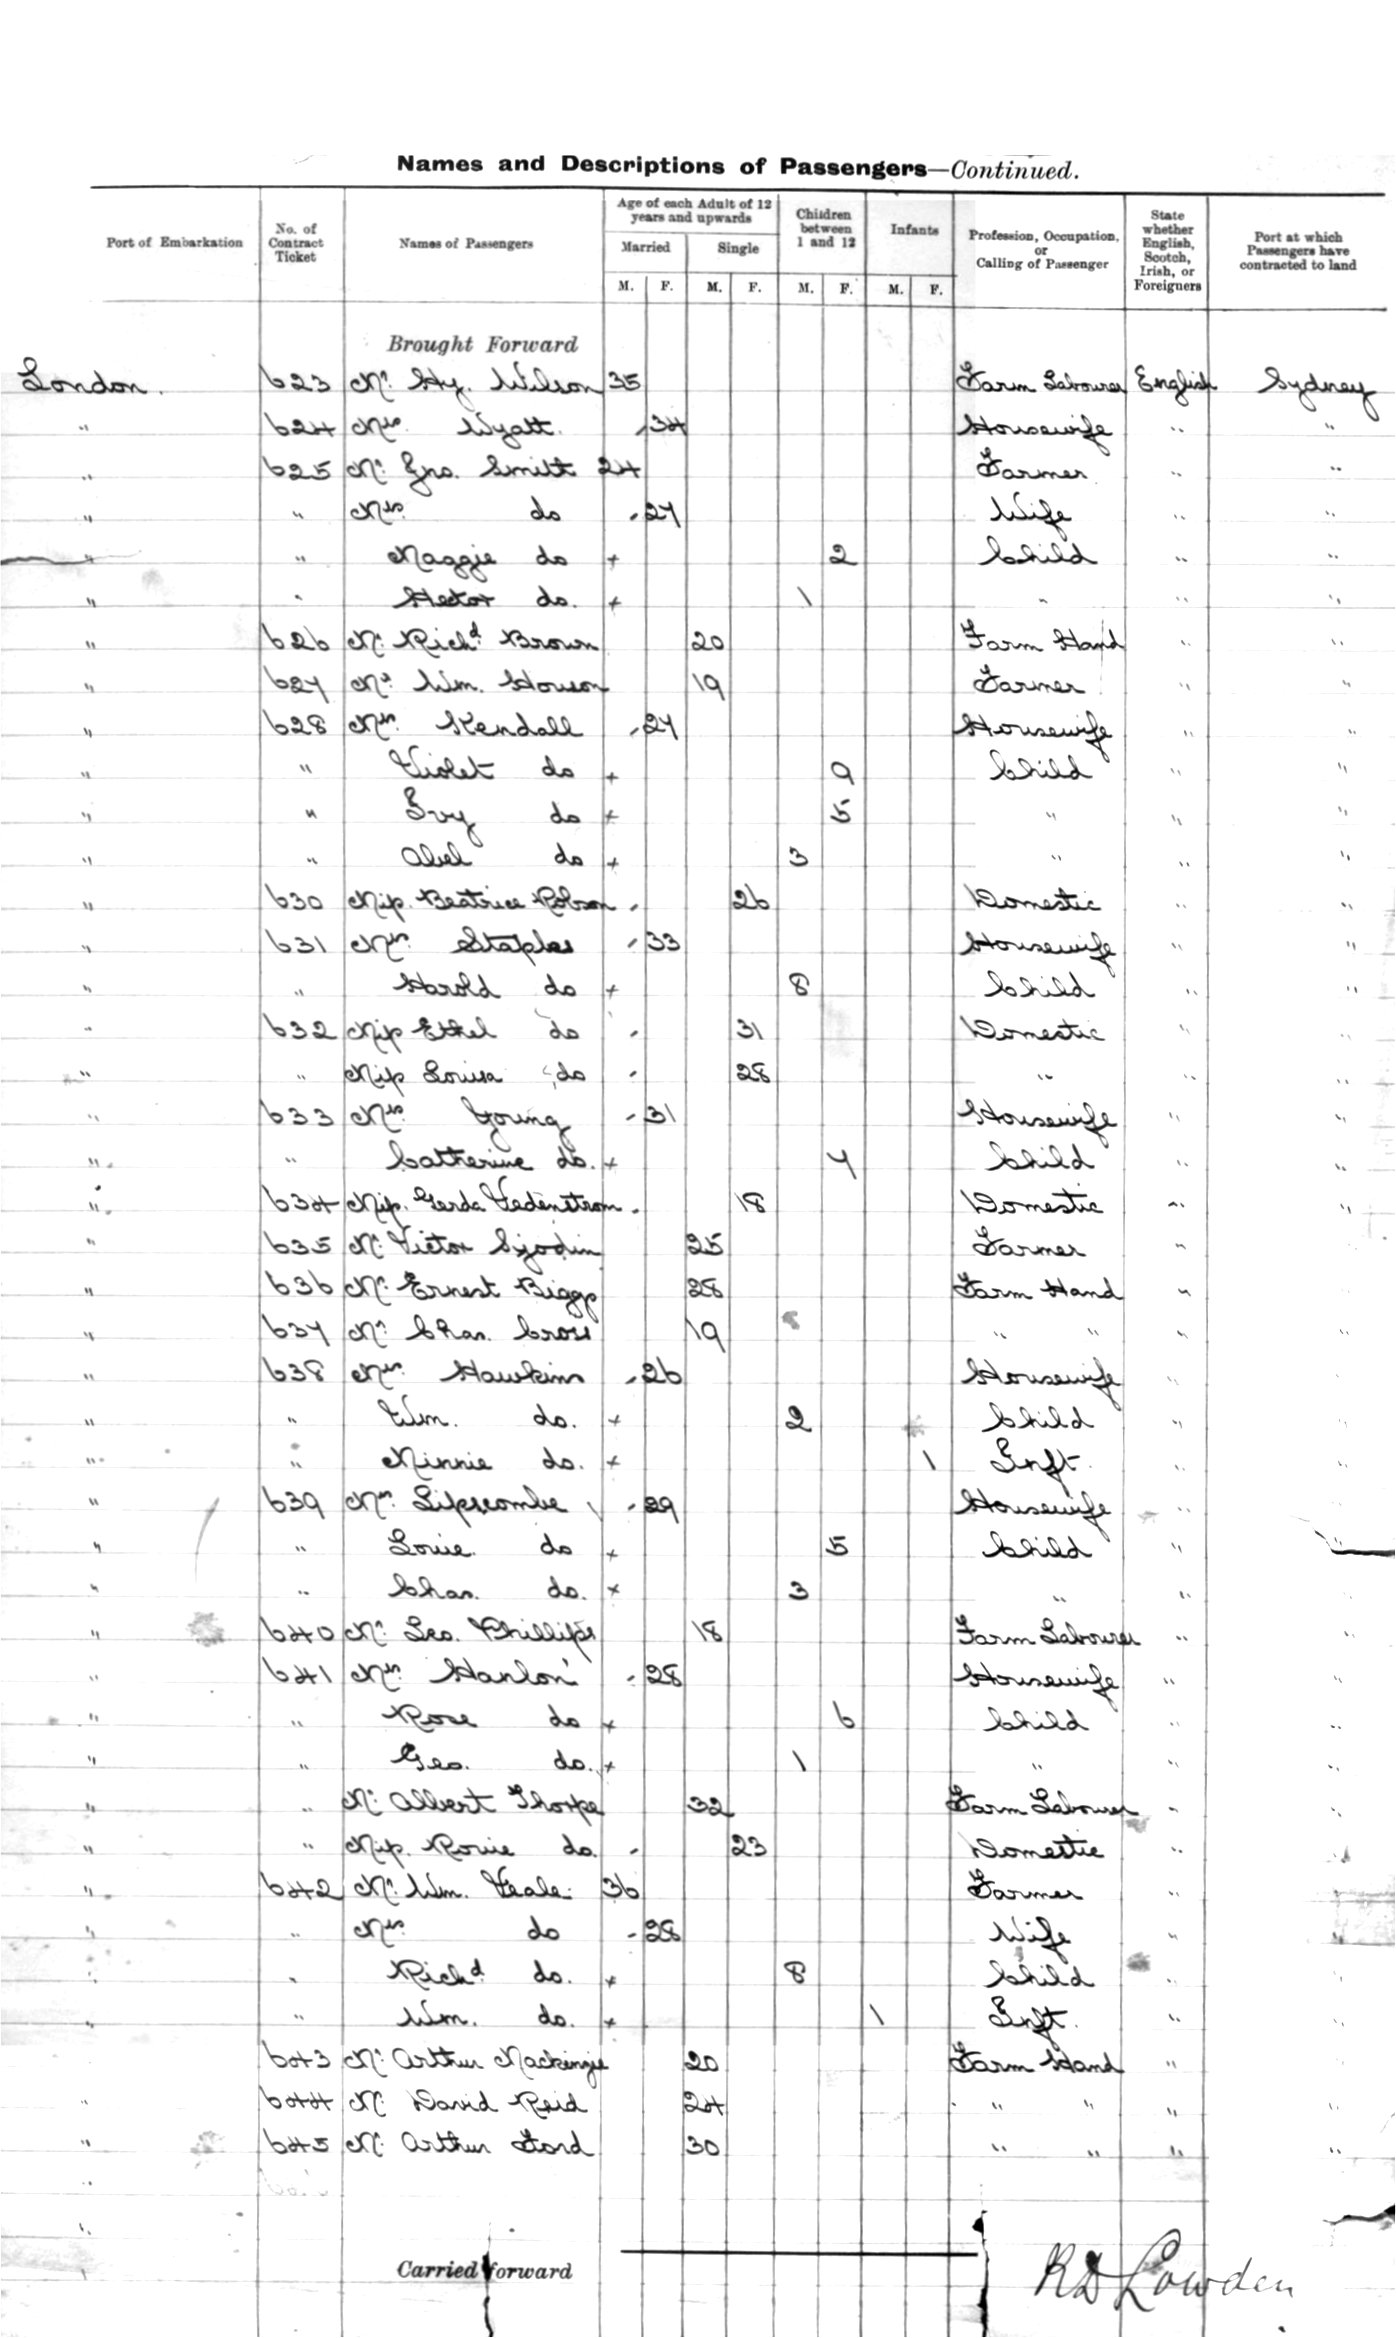 Names and Descriptions of Passengers—Continued.
Port of Embarkation | No. of Contract Ticket | Names of Passengers | Age of each Adult of 12 years and upwards | Children between 1 and 12 | Infants | Profession, Occupation, or Calling of Passenger | State whether English, Scotch, Irish, or Foreigners | Port at which Passengers have contracted to land
Married | Single
M. F. M. F. M. F. M. F.
Brought Forward
London. 623 Mr. Hy. Wilson 35 Farm Labourer English Sydney
" 624 Mrs. Wyatt. 34 Housewife " "
" 625 Mr. Jno. Smith 24 Farmer " "
" " Mrs. do 27 Wife " "
" " Maggie do + 2 Child " "
" " Hector do. + 1 " " "
" 626 Mr. Richd. Brown 20 Farm Hand " "
" 627 Mr. Wm. Howson 19 Farmer " "
" 628 Mrs. Kendall 27 Housewife " "
" " Violet do + 9 Child " "
" " Ivy do + 5 " " "
" " Abel do + 3 " " "
" 630 Miss. Beatrice Robson 26 Domestic " "
" 631 Mrs. Staples 33 Housewife " "
" " Harold do + 8 Child " "
" 632 Miss Ethel do 31 Domestic " "
" " Miss Louisa do 28 " " "
" 633 Mrs. Young 31 Housewife " "
" " Catherine do. + 7 Child " "
" 634 Miss. Gerda Vedenstrom 18 Domestic " "
" 635 Mr. Victor Sjodin 25 Farmer "
" 636 Mr. Ernest Biggs 28 Farm Hand " "
" 637 Mr. Chas. Cross 19 " " " "
" 638 Mrs. Hawkins 26 Housewife " "
" " Wm. do. + 2 Child " "
" " Minnie do. + 1 Inft. " "
" 639 Mrs. Lipscombe 29 Housewife "
" " Louie. do + 5 Child "
" " Chas. do. + 3 " " "
" 640 Mr. Geo. Phillips 18 Farm Labourer " "
" 641 Mrs. Hanlon 28 Housewife " "
" " Rose do + 6 Child " "
" " Geo. do. + 1 " " "
" " Mr. Albert Thorpe 32 Farm Labourer " "
" " Miss. Rosie do. 23 Domestic " "
" 642 Mr. Wm. Veale. 36 Farmer " "
" " Mrs. do 28 Wife " "
" " Richd. do. + 8 Child " "
" " Wm. do. + 1 Inft. " "
643 Mr. Arthur Mackenzie 20 Farm Hand " "
" 644 Mr. David Reid 24 " " " "
" 645 Mr. Arthur Ford 30 " " " "
Carried forward
RD Lowden